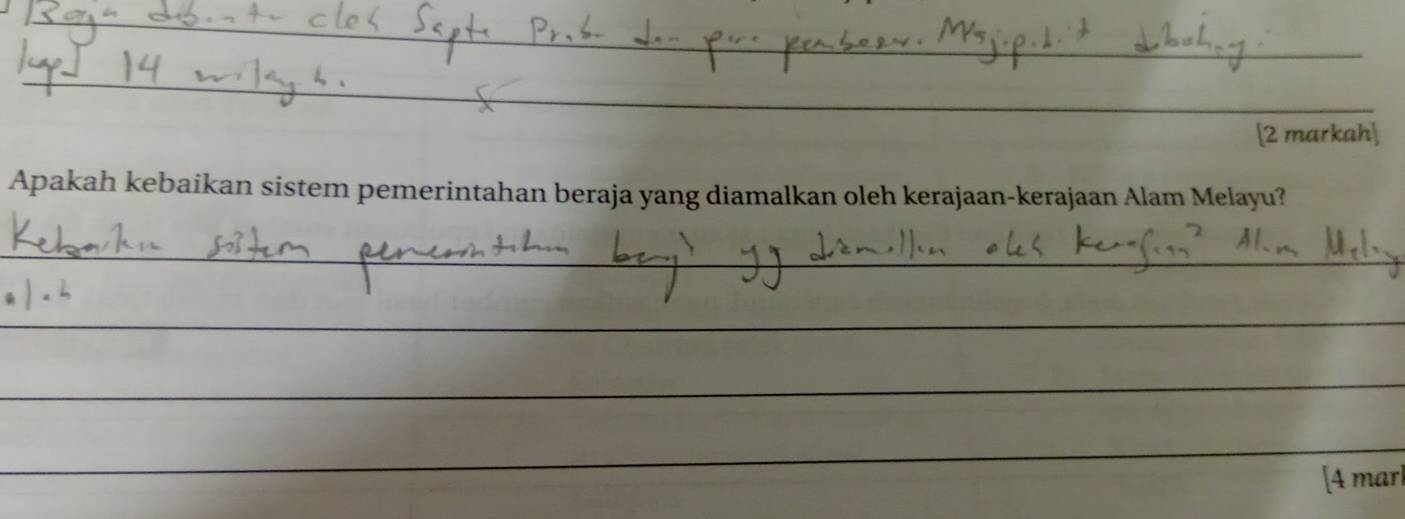 Raja dibantu oleh Sapta Prabu dan para pembesar. Majapahit dibahagi
kepd 14 wilayah.
[2 markah]
Apakah kebaikan sistem pemerintahan beraja yang diamalkan oleh kerajaan-kerajaan Alam Melayu?
Kebaikan sistem pemerintahan beraja yg diamalkan oleh kerajaan² Alam Melay
ialah
[4 mark